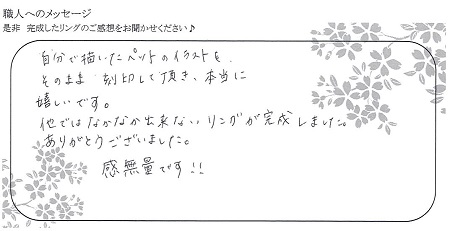 職人へのメッセージ
是非 完成したリングのご感想をお聞かせください♪
自分で描いたペットのイラストを、
そのまま 刻印して頂き、本当に
嬉しいです。
他ではなかなか出来ないリングが完成しました。
ありがとうございました。
感無量です!!